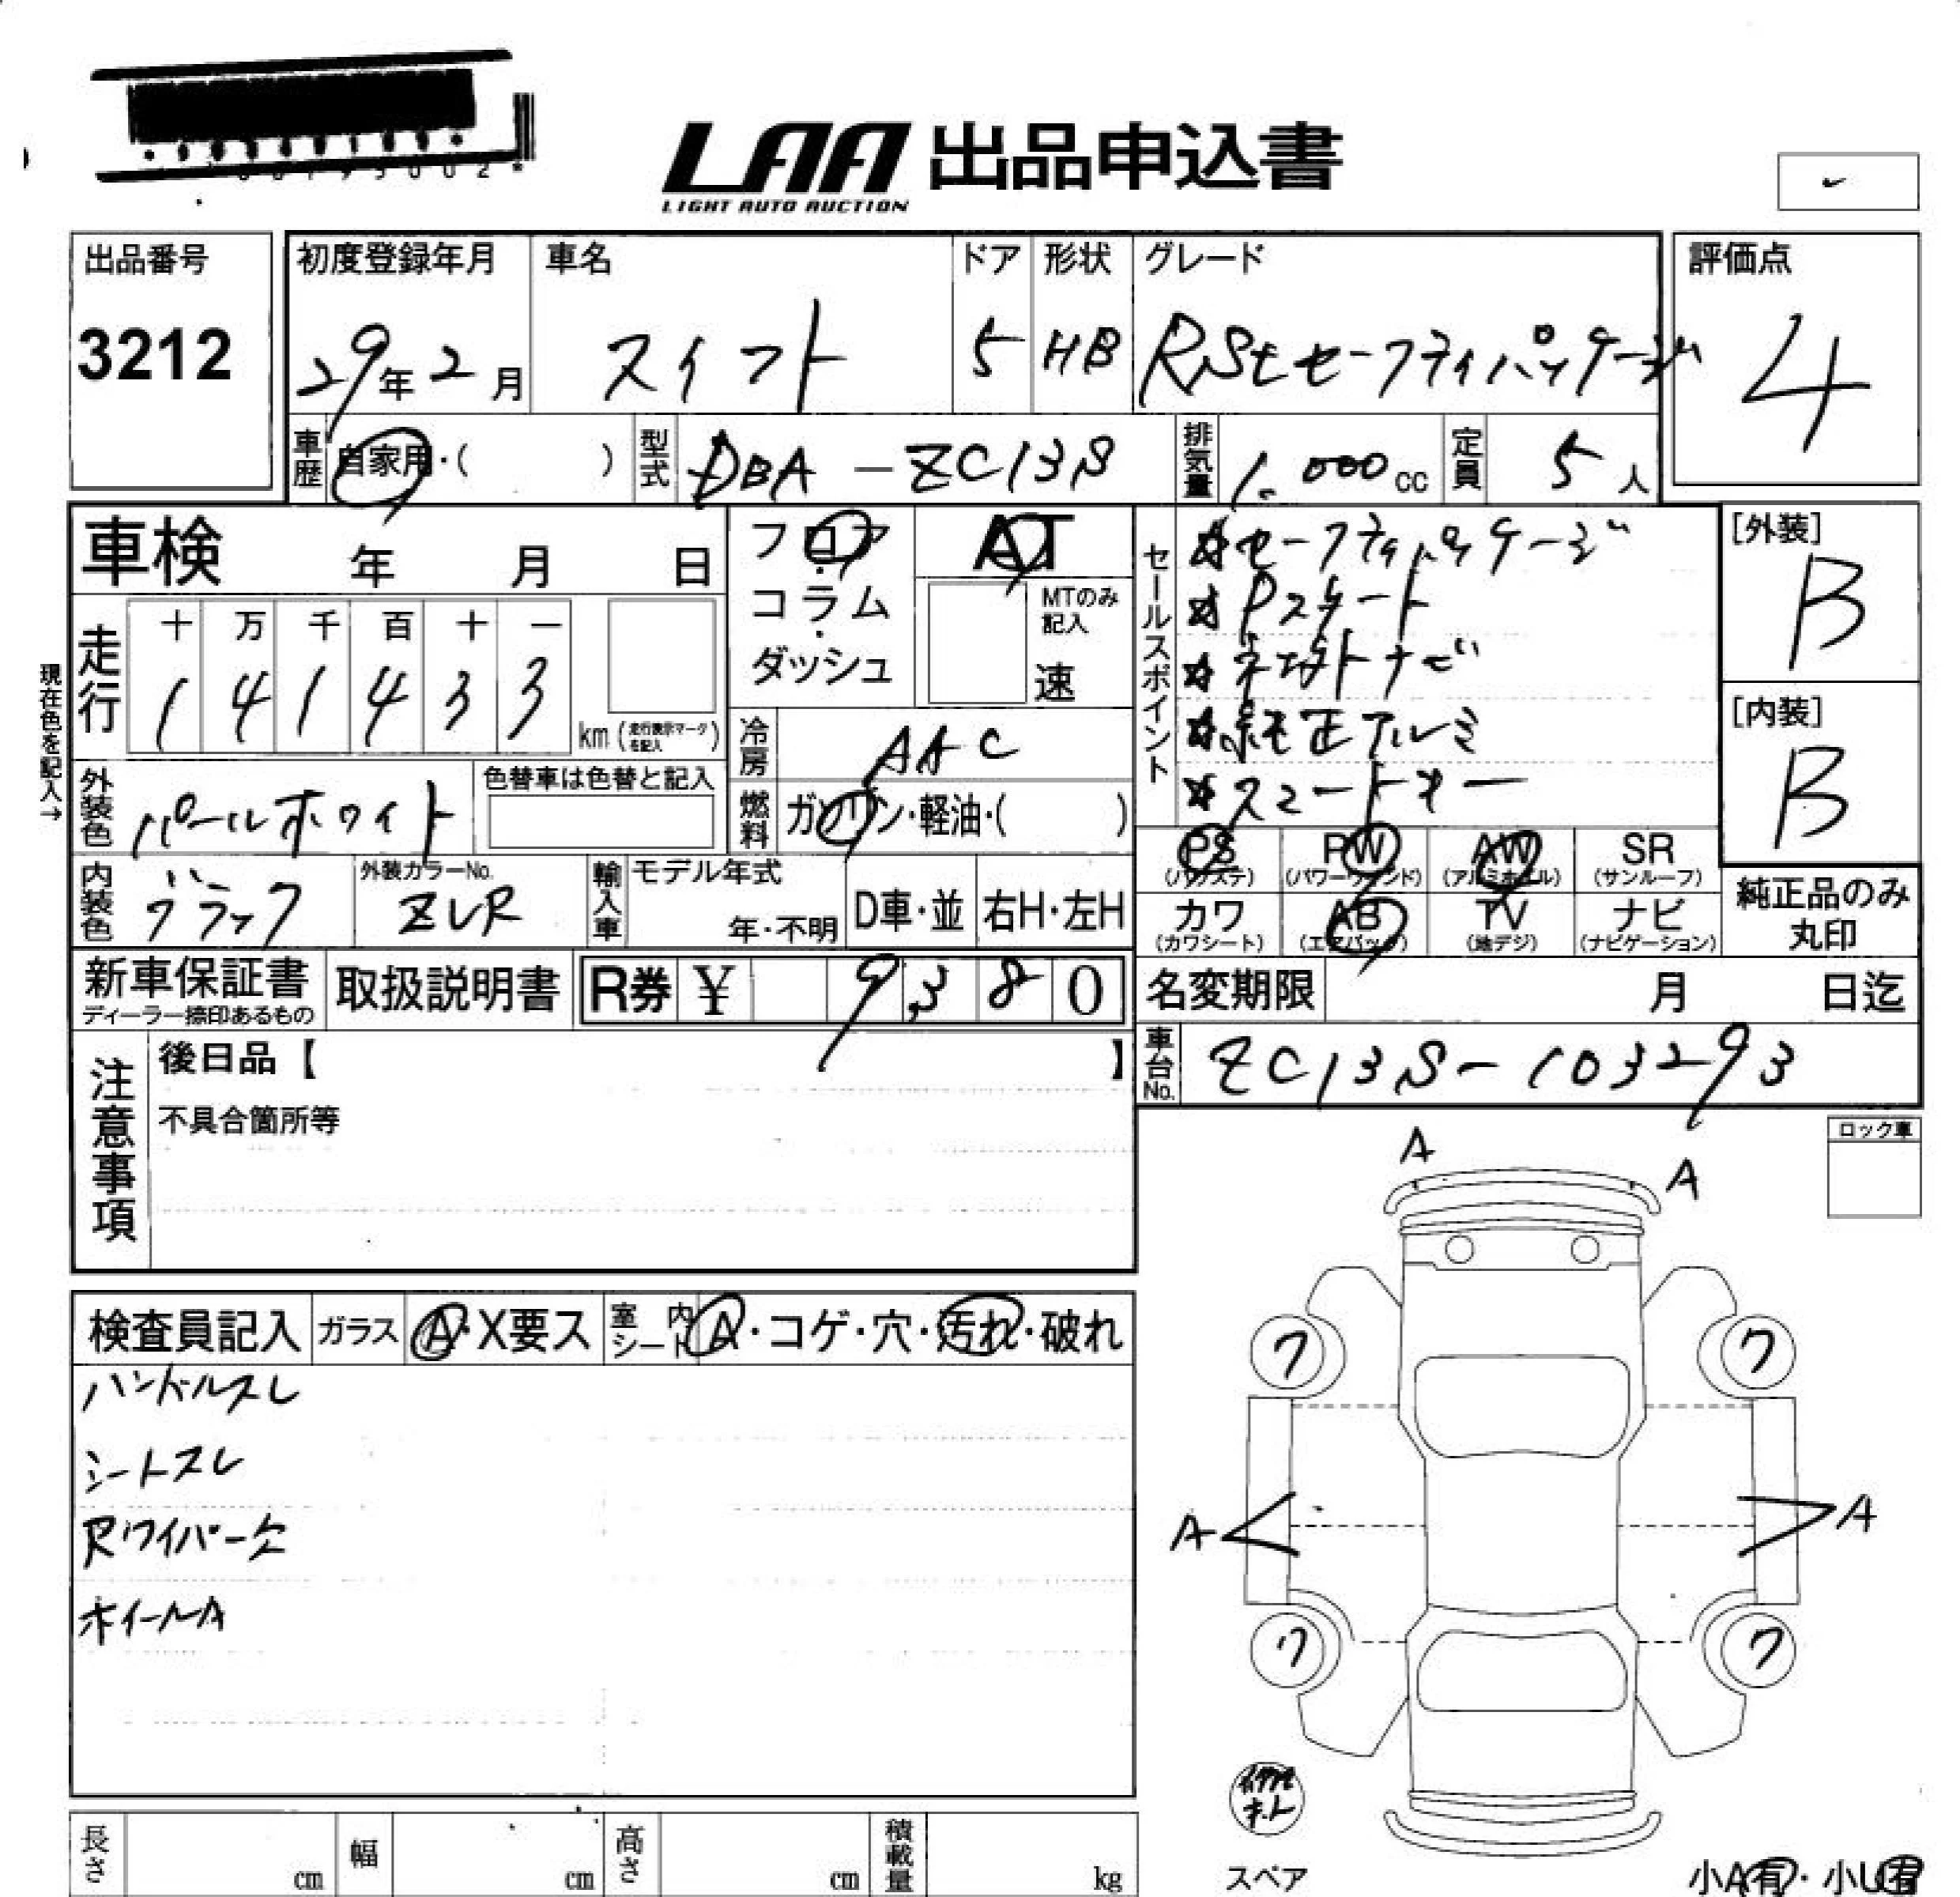 LAA 出品申込書
LIGHT AUTO AUCTION
出品番号
3212
初度登録年月
29年2月
車名
スイフト
ドア
5
形状
HB
グレード
RStセーフティパッケージ
評価点
4
車歴
自家用・( )
型式
DBA-ZC13S
排気量
1.000cc
定員
5人
車検 年 月 日
現在色を記入→
走行
十 万 千 百 十 一
1 4 1 4 3 3
km (走行表示マークを記入)
フロア
・
コラム
・
ダッシュ
AT
MTのみ
記入
速
冷房
AAC
燃料
ガソリン・軽油・( )
セールスポイント
☆セーフティパッケージ
☆Pスタート
☆純正アルミ
☆スマートキー
[外装]
B
[内装]
B
外装色
パールホワイト
色替車は色替と記入
内装色
ブラック
外装カラーNo.
ZVR
輸入車
モデル年式
年・不明
D車・並
右H・左H
PS
(パワステ)
PW
(パワーウィンド)
AW
(アルミホイル)
SR
(サンルーフ)
カワ
(カワシート)
AB
(エアバック)
TV
(地デジ)
ナビ
(ナビゲーション)
純正品のみ
丸印
新車保証書
ディーラー捺印あるもの
取扱説明書
R券 ¥ 9,380
名変期限 月 日迄
車台No.
ZC13S-103293
注意事項
後日品【 】
不具合箇所等
ロック車
A
A
検査員記入
ガラス
A・X要ス
室内シート
A・コゲ・穴・汚れ・破れ
ハンドルスレ
シートスレ
Rワイパー欠
ホイールA
ワ
ワ
A
A
ワ
ワ
スペア
小A有・小U有
長さ cm
幅 cm
高さ cm
積載量 kg